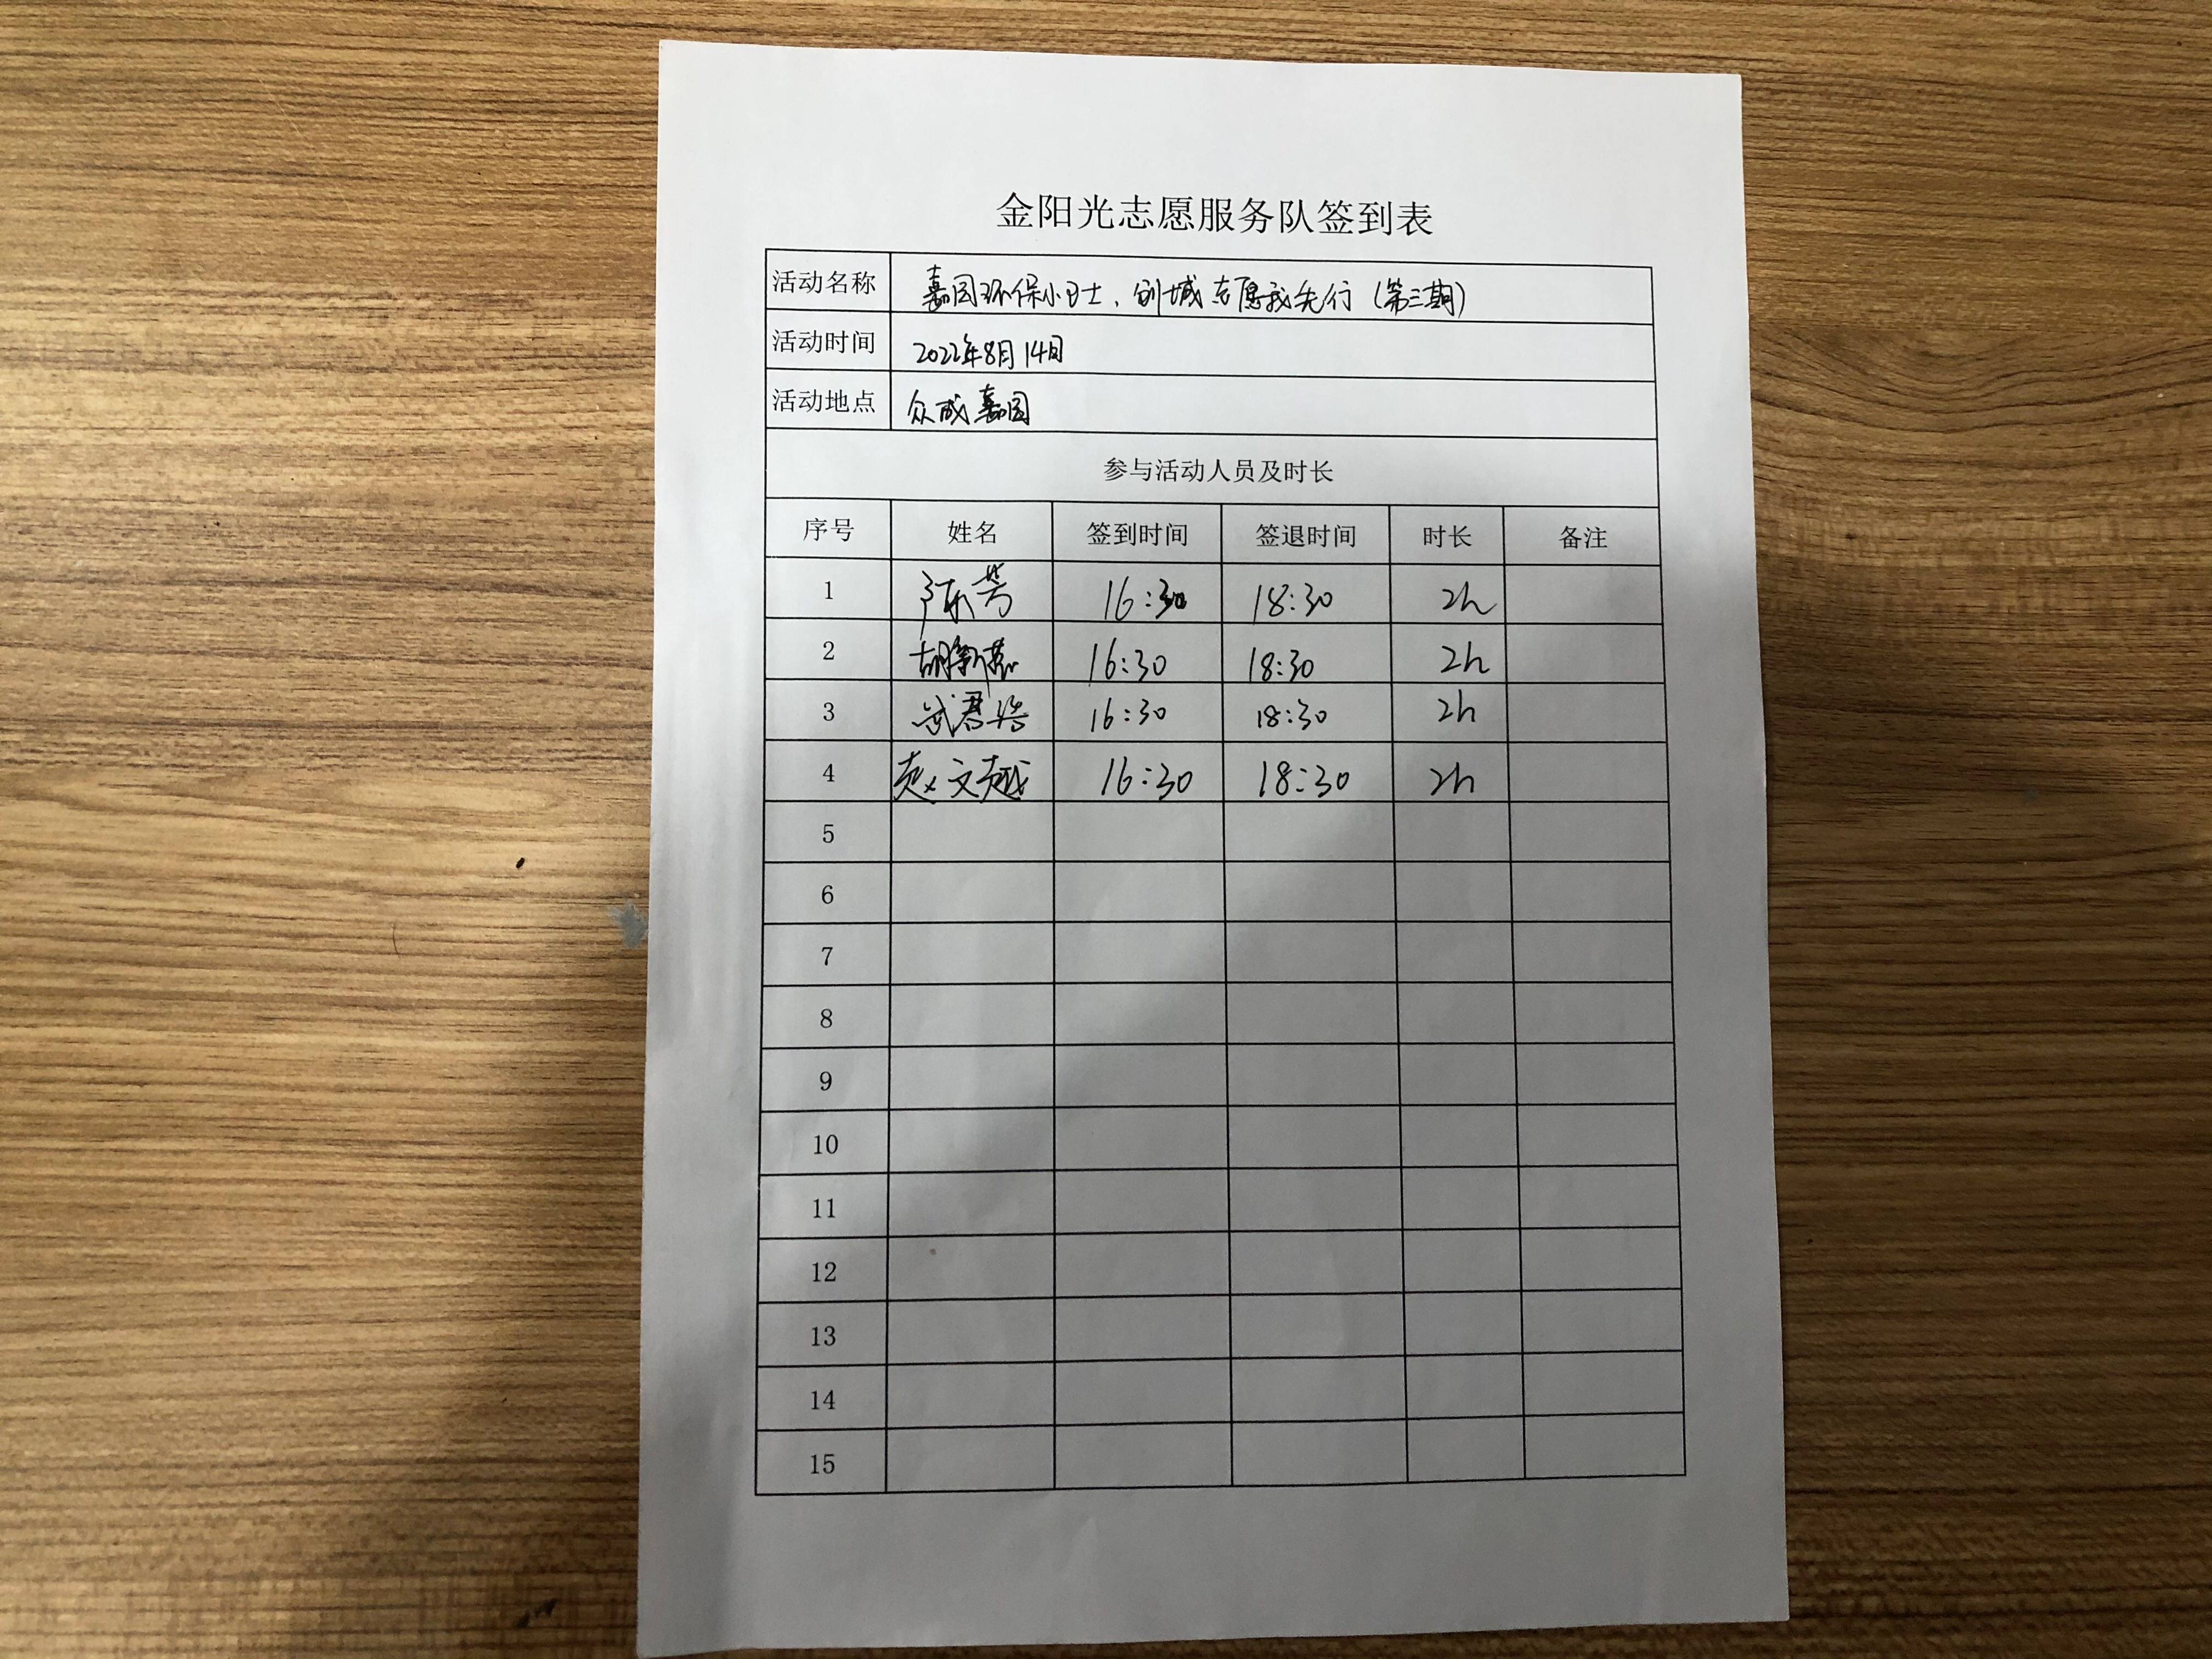 金阳光志愿服务队签到表
活动名称 嘉园环保小卫士，创城志愿我先行（第三期）
活动时间 2022年8月14日
活动地点 众成嘉园
参与活动人员及时长
序号 姓名 签到时间 签退时间 时长 备注
1 陈芳 16:30 18:30 2h
2 胡新 16:30 18:30 2h
3 武君浩 16:30 18:30 2h
4 赵文越 16:30 18:30 2h
5
6
7
8
9
10
11
12
13
14
15